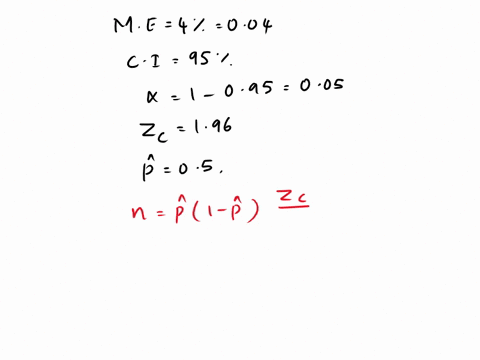 M.E = 4% = 0.04
C.I = 95%.
α = 1 - 0.95 = 0.05
Zc = 1.96
p̂ = 0.5.
n = p̂(1-p̂) Zc